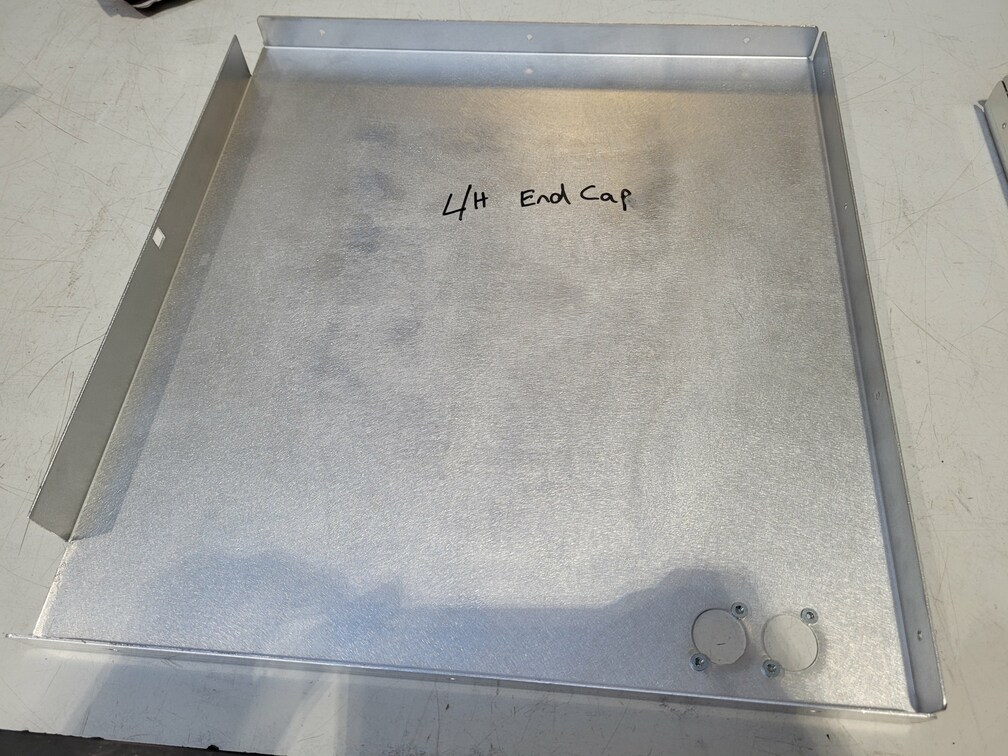 L/H End Cap